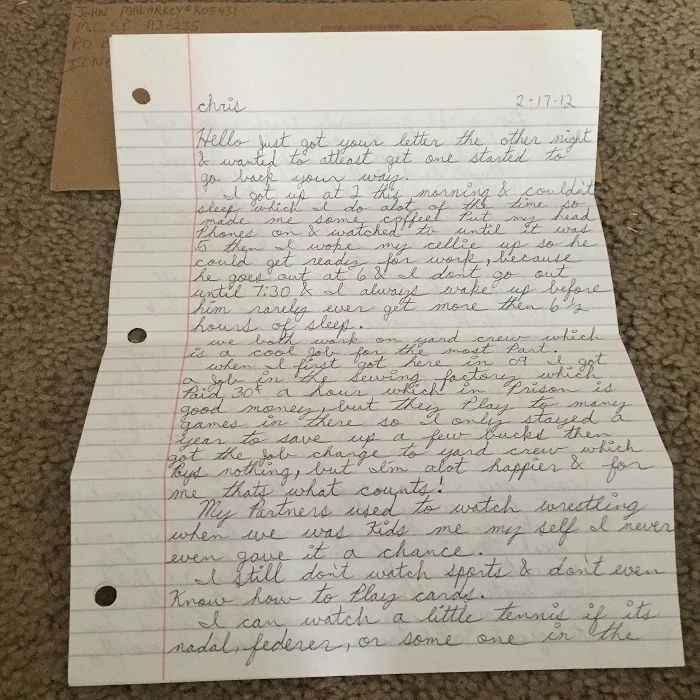 JOHN MALARKEY # K05431
M.C.S.P. A3-235
PO B
IONE
chris 2-17-12
Hello Just got your letter the other night
& wanted to atleast get one started to
go back your way.
I got up at 2 this morning & couldn't
sleep which I do alot of the time so
made me some coffee Put my head
Phones on & watched tv until it was
5 then I woke my cellie up so he
could get ready for work, because
he goes out at 6 & I don't go out
until 7:30 & I always wake up before
him rarely ever get more then 6 ½
hours of sleep.
we both work on yard crew which
is a cool Job for the most Part.
when I first got here in 09 I got
a Job in the sewing factory which
Paid 30¢ a hour which in Prison is
good money, but they Play to many
games in there so I only stayed a
year to save up a few bucks then
got the Job change to yard crew which
Pays nothing, but I'm alot happier & for
me thats what counts!
My Partners used to watch wrestling
when we was Kids me my self I never
even gave it a chance.
I still don't watch sports & don't even
Know how to Play cards.
I can watch a little tennis if its
nadal, federer, or some one in the